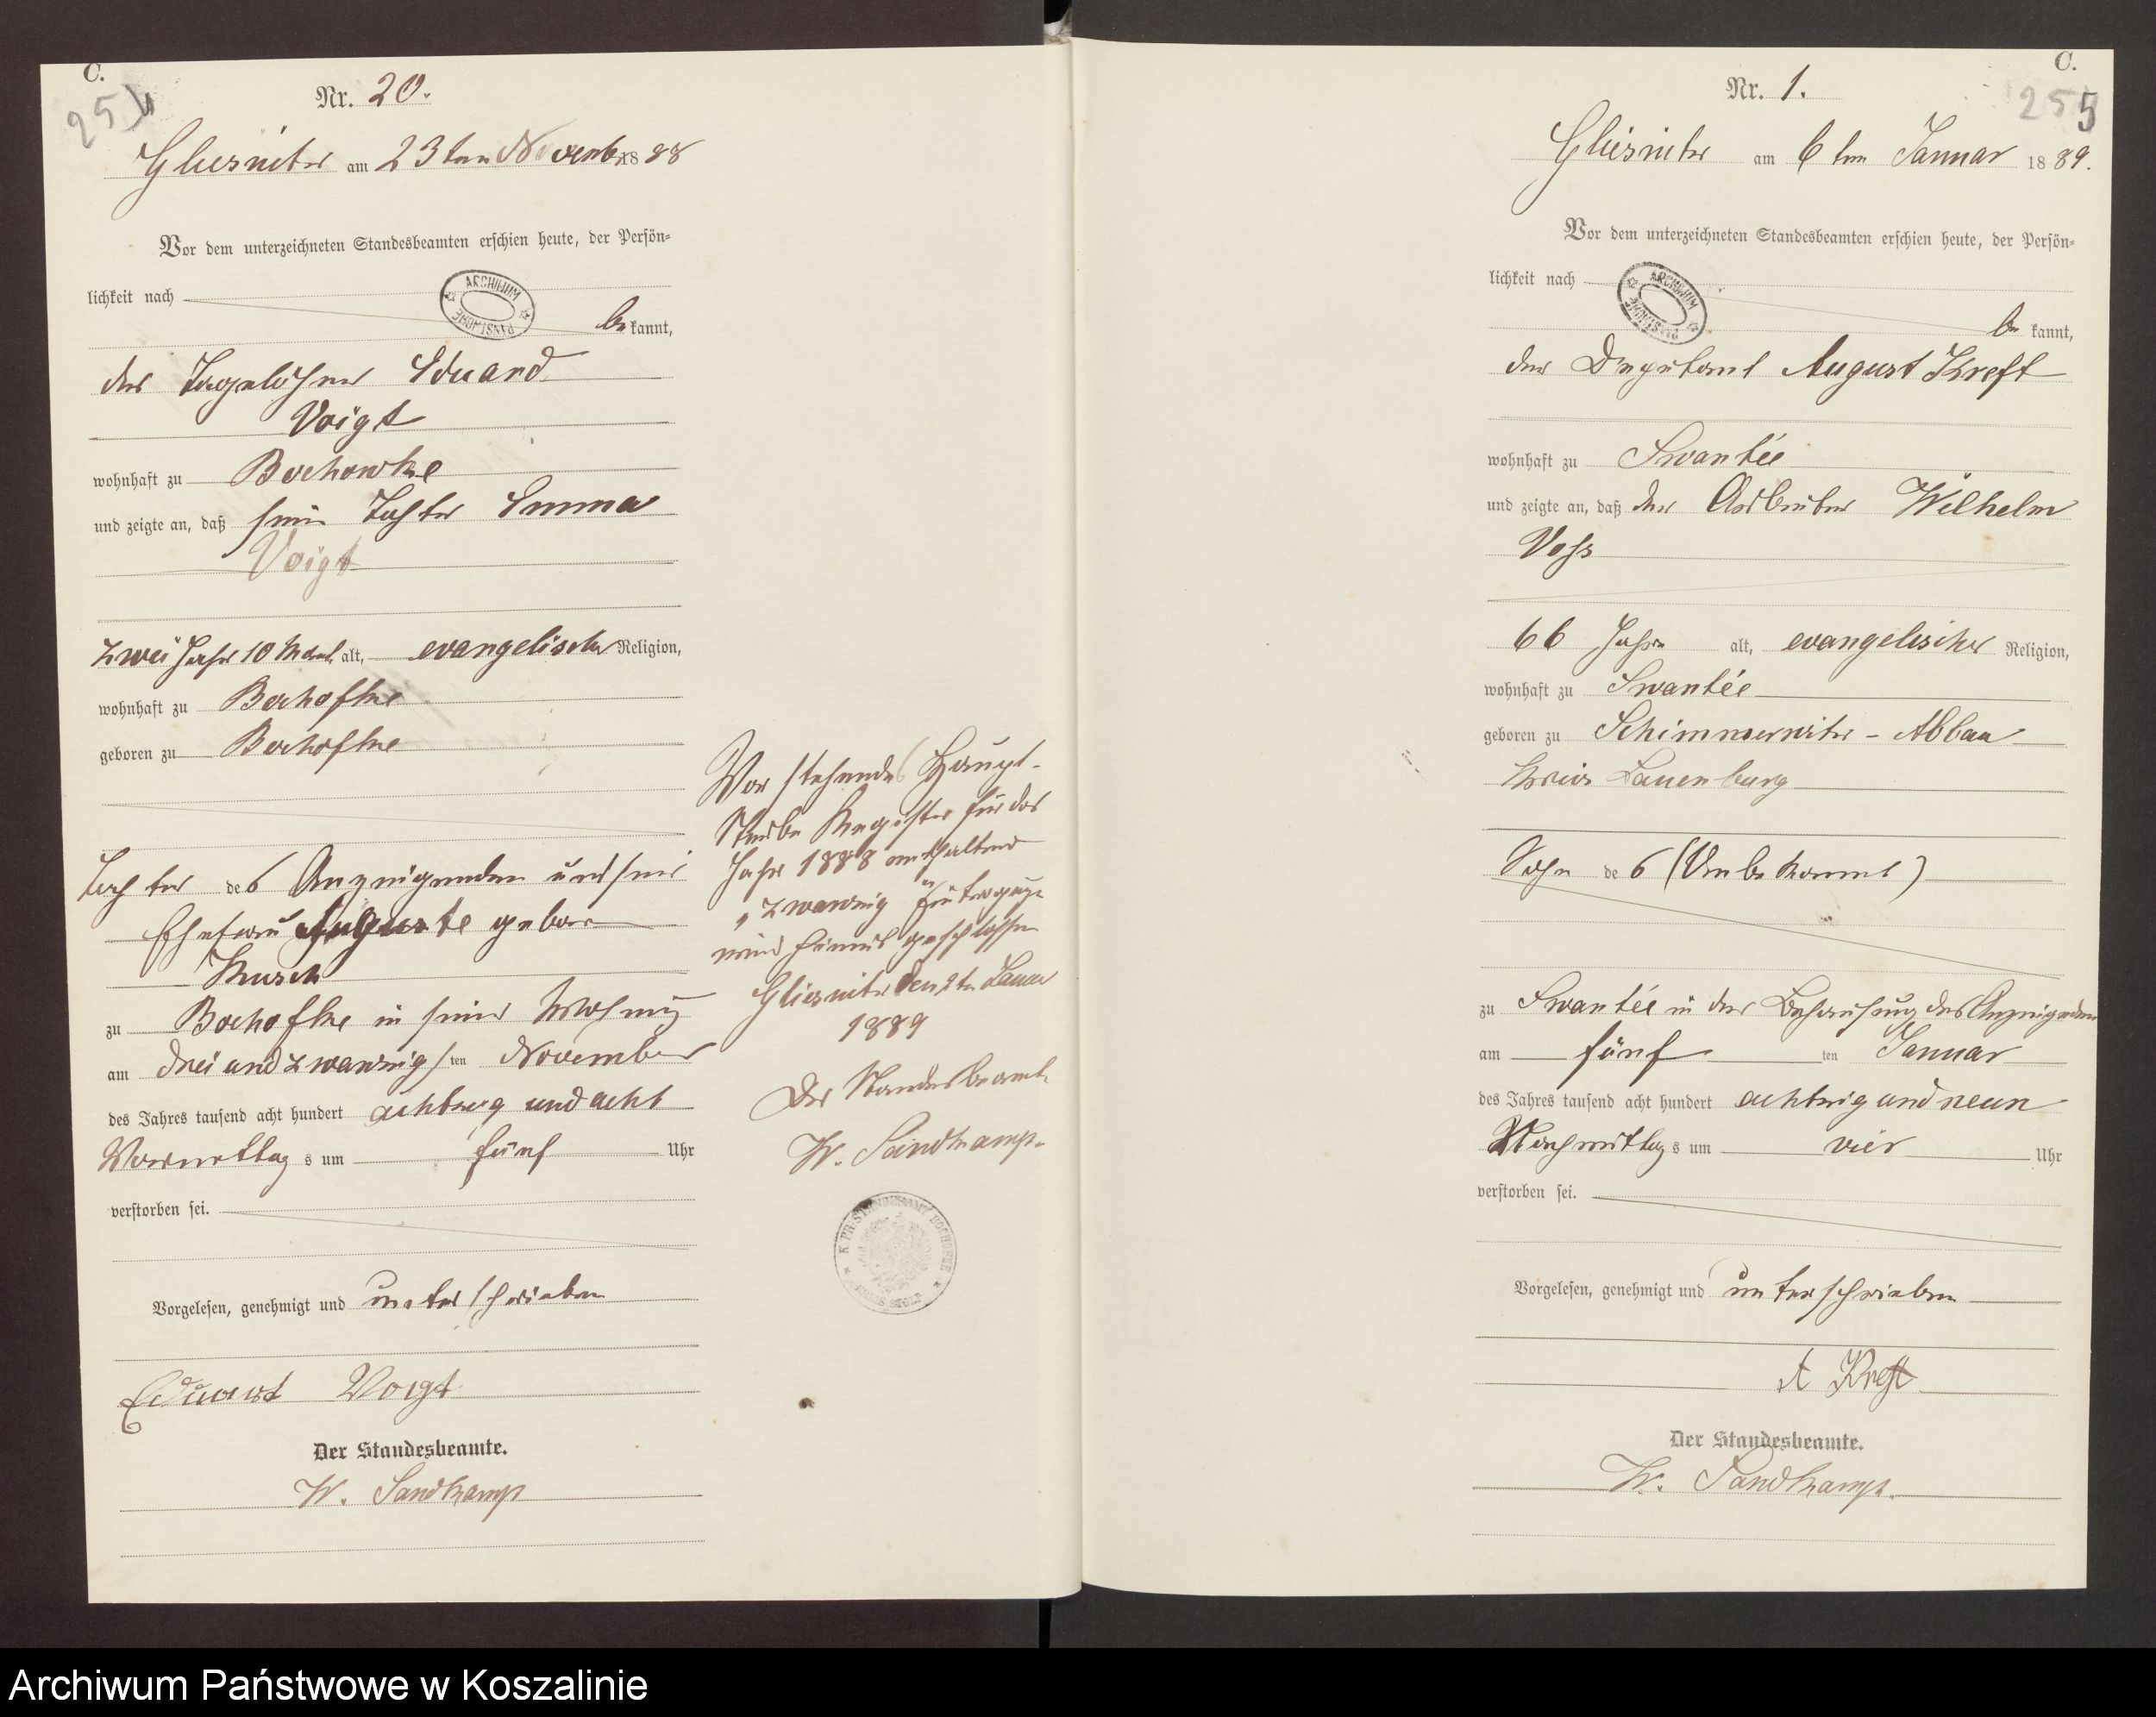 C.
254
Nr. 20.
Gliesnitz am 23ten November 1888
Vor dem unterzeichneten Standesbeamten erschien heute, der Persön-
lichkeit nach
be kannt,
der Tagelöhner Eduard
Voigt
wohnhaft zu Bochowke
und zeigte an, daß seine Tochter Emma
Voigt
zwei Jahr 10 Monat alt, evangelischer Religion,
wohnhaft zu Bochofke
geboren zu Bochofke
Tochter des Anzeigenden und seiner
Ehefrau Auguste geborene
zu Bochofke in seiner Wohnung
am drei und zwanzigsten November
des Jahres tausend acht hundert achtzig und acht
Vormittags um fünf Uhr
verstorben sei.
Vorgelesen, genehmigt und unterschrieben
Eduard Voigt
Der Standesbeamte.
W. Sandkamp
Vorstehendes Haupt-
Sterbe Register für das
Jahr 1888 enthaltend
zwanzig Eintragungen
wird hiermit geschlossen
Gliesnitz den Januar
1889
Der Standesbeamte
W. Sandkamp.
ARCHIWUM PAŃSTWOWE
K. PR. STANDESAMT BOCHOFKE KREIS STOLP
C.
255
Nr. 1.
Gliesnitz am 6ten Januar 1889.
Vor dem unterzeichneten Standesbeamten erschien heute, der Persön-
lichkeit nach
ARCHIWUM PAŃSTWOWE
be kannt,
der Deputant August Kreft
wohnhaft zu Swantée
und zeigte an, daß der Arbeiter Wilhelm
Voss
66 Jahre alt, evangelischer Religion,
wohnhaft zu Swantée
geboren zu Schimmerwitz - Abbau
Kreis Lauenburg
Sohn des (Unbekannt)
zu Swantée in der Behausung des Anzeigenden
am fünften Januar
des Jahres tausend acht hundert achtzig und neun
Nachmittags um vier Uhr
verstorben sei.
Vorgelesen, genehmigt und unterschrieben
A Kreft
Der Standesbeamte.
W. Sandkamp.
Archiwum Państwowe w Koszalinie